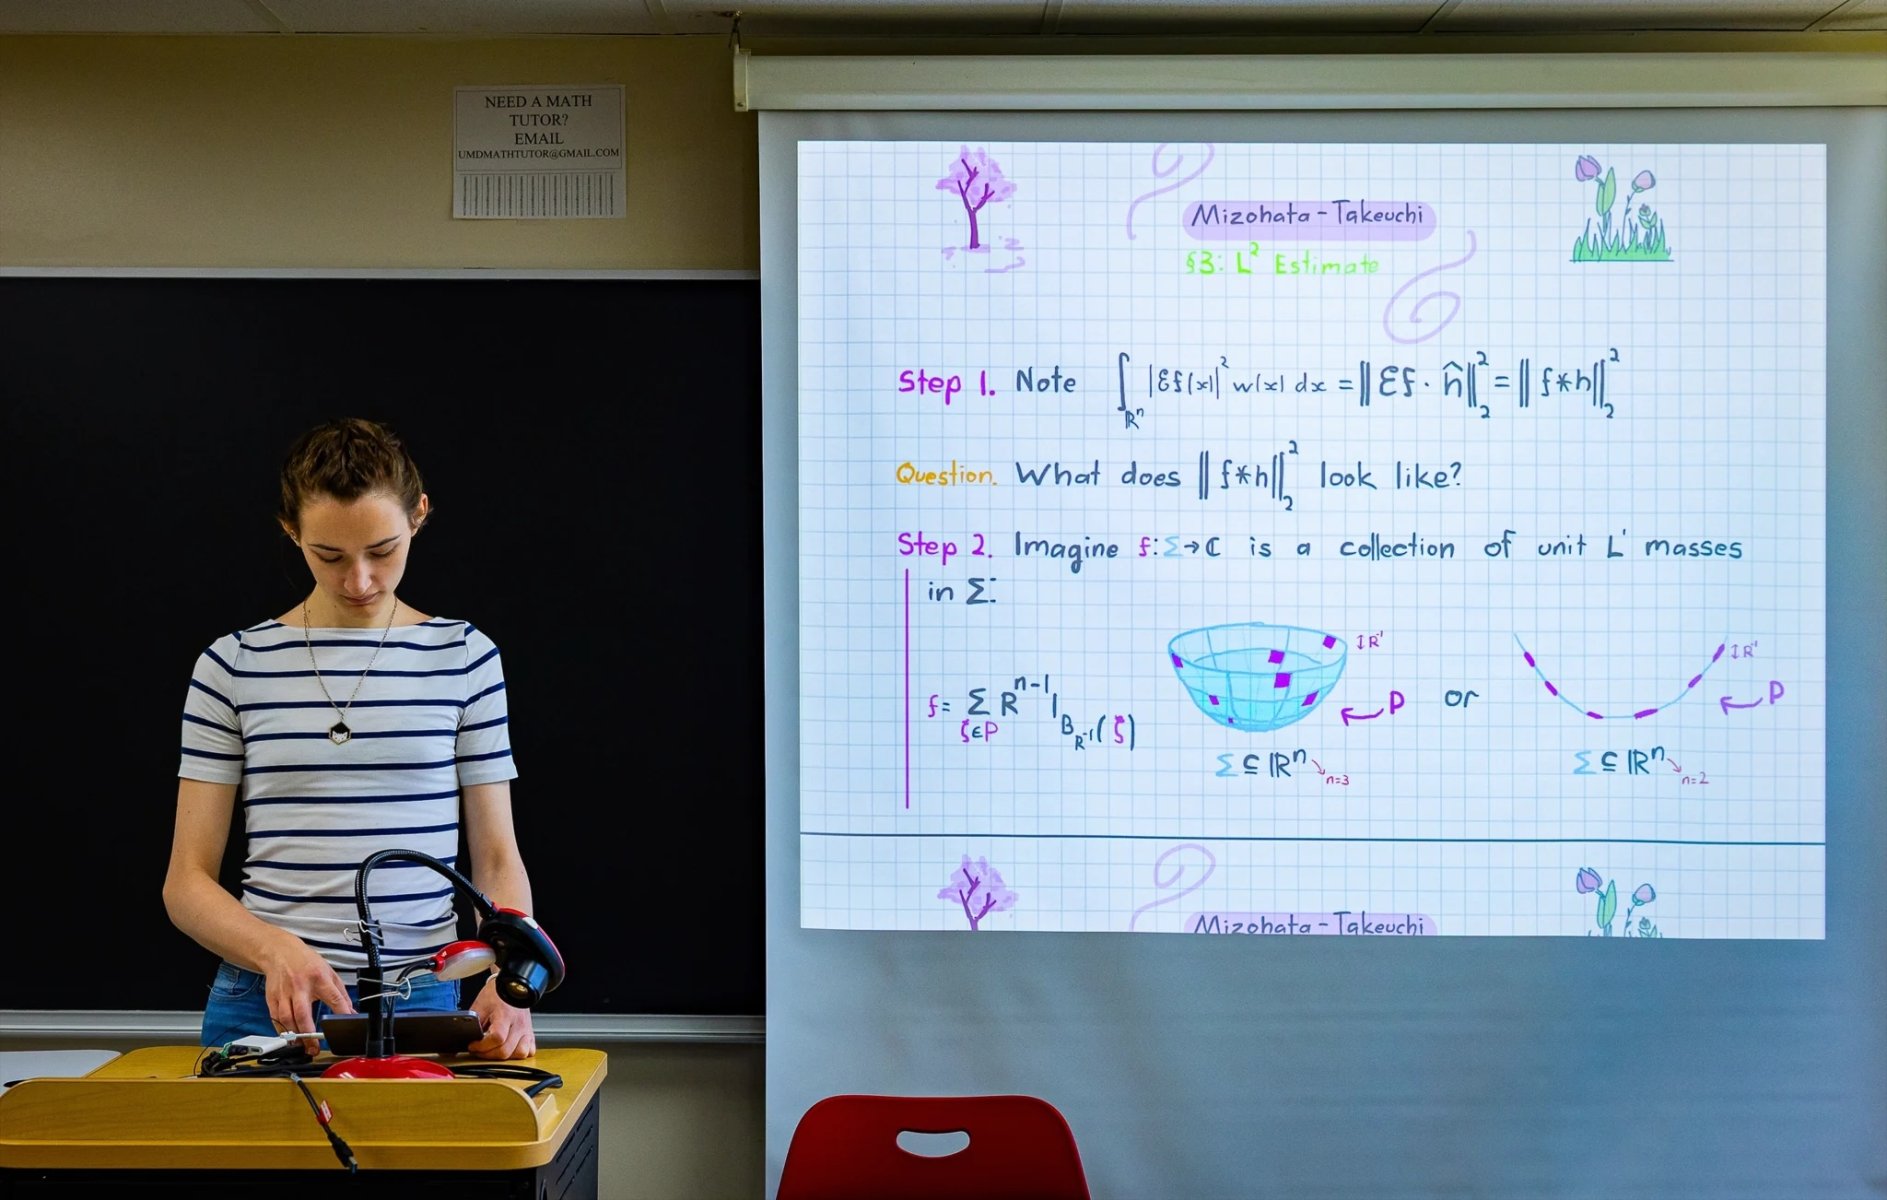 NEED A MATH
TUTOR?
EMAIL
UMDMATHTUTOR@GMAIL.COM
Mizohata-Takeuchi
§3: L² Estimate
Step 1. Note ∫_ℝⁿ |Ɛf(x)|² w(x) dx = ‖Ɛf · ĥ‖₂² = ‖f*h‖₂²
Question. What does ‖f*h‖₂² look like?
Step 2. Imagine f:Σ→ℂ is a collection of unit L¹ masses
in Σ:
f= Σ_{ζ∈P} R^{n-1} 1_{B_{R⁻¹}(ζ)}
↕R⁻¹
← P
or
↕R⁻¹
← P
Σ ⊆ ℝⁿ ↘ n=3
Σ ⊆ ℝⁿ ↘ n=2
Mizohata-Takeuchi